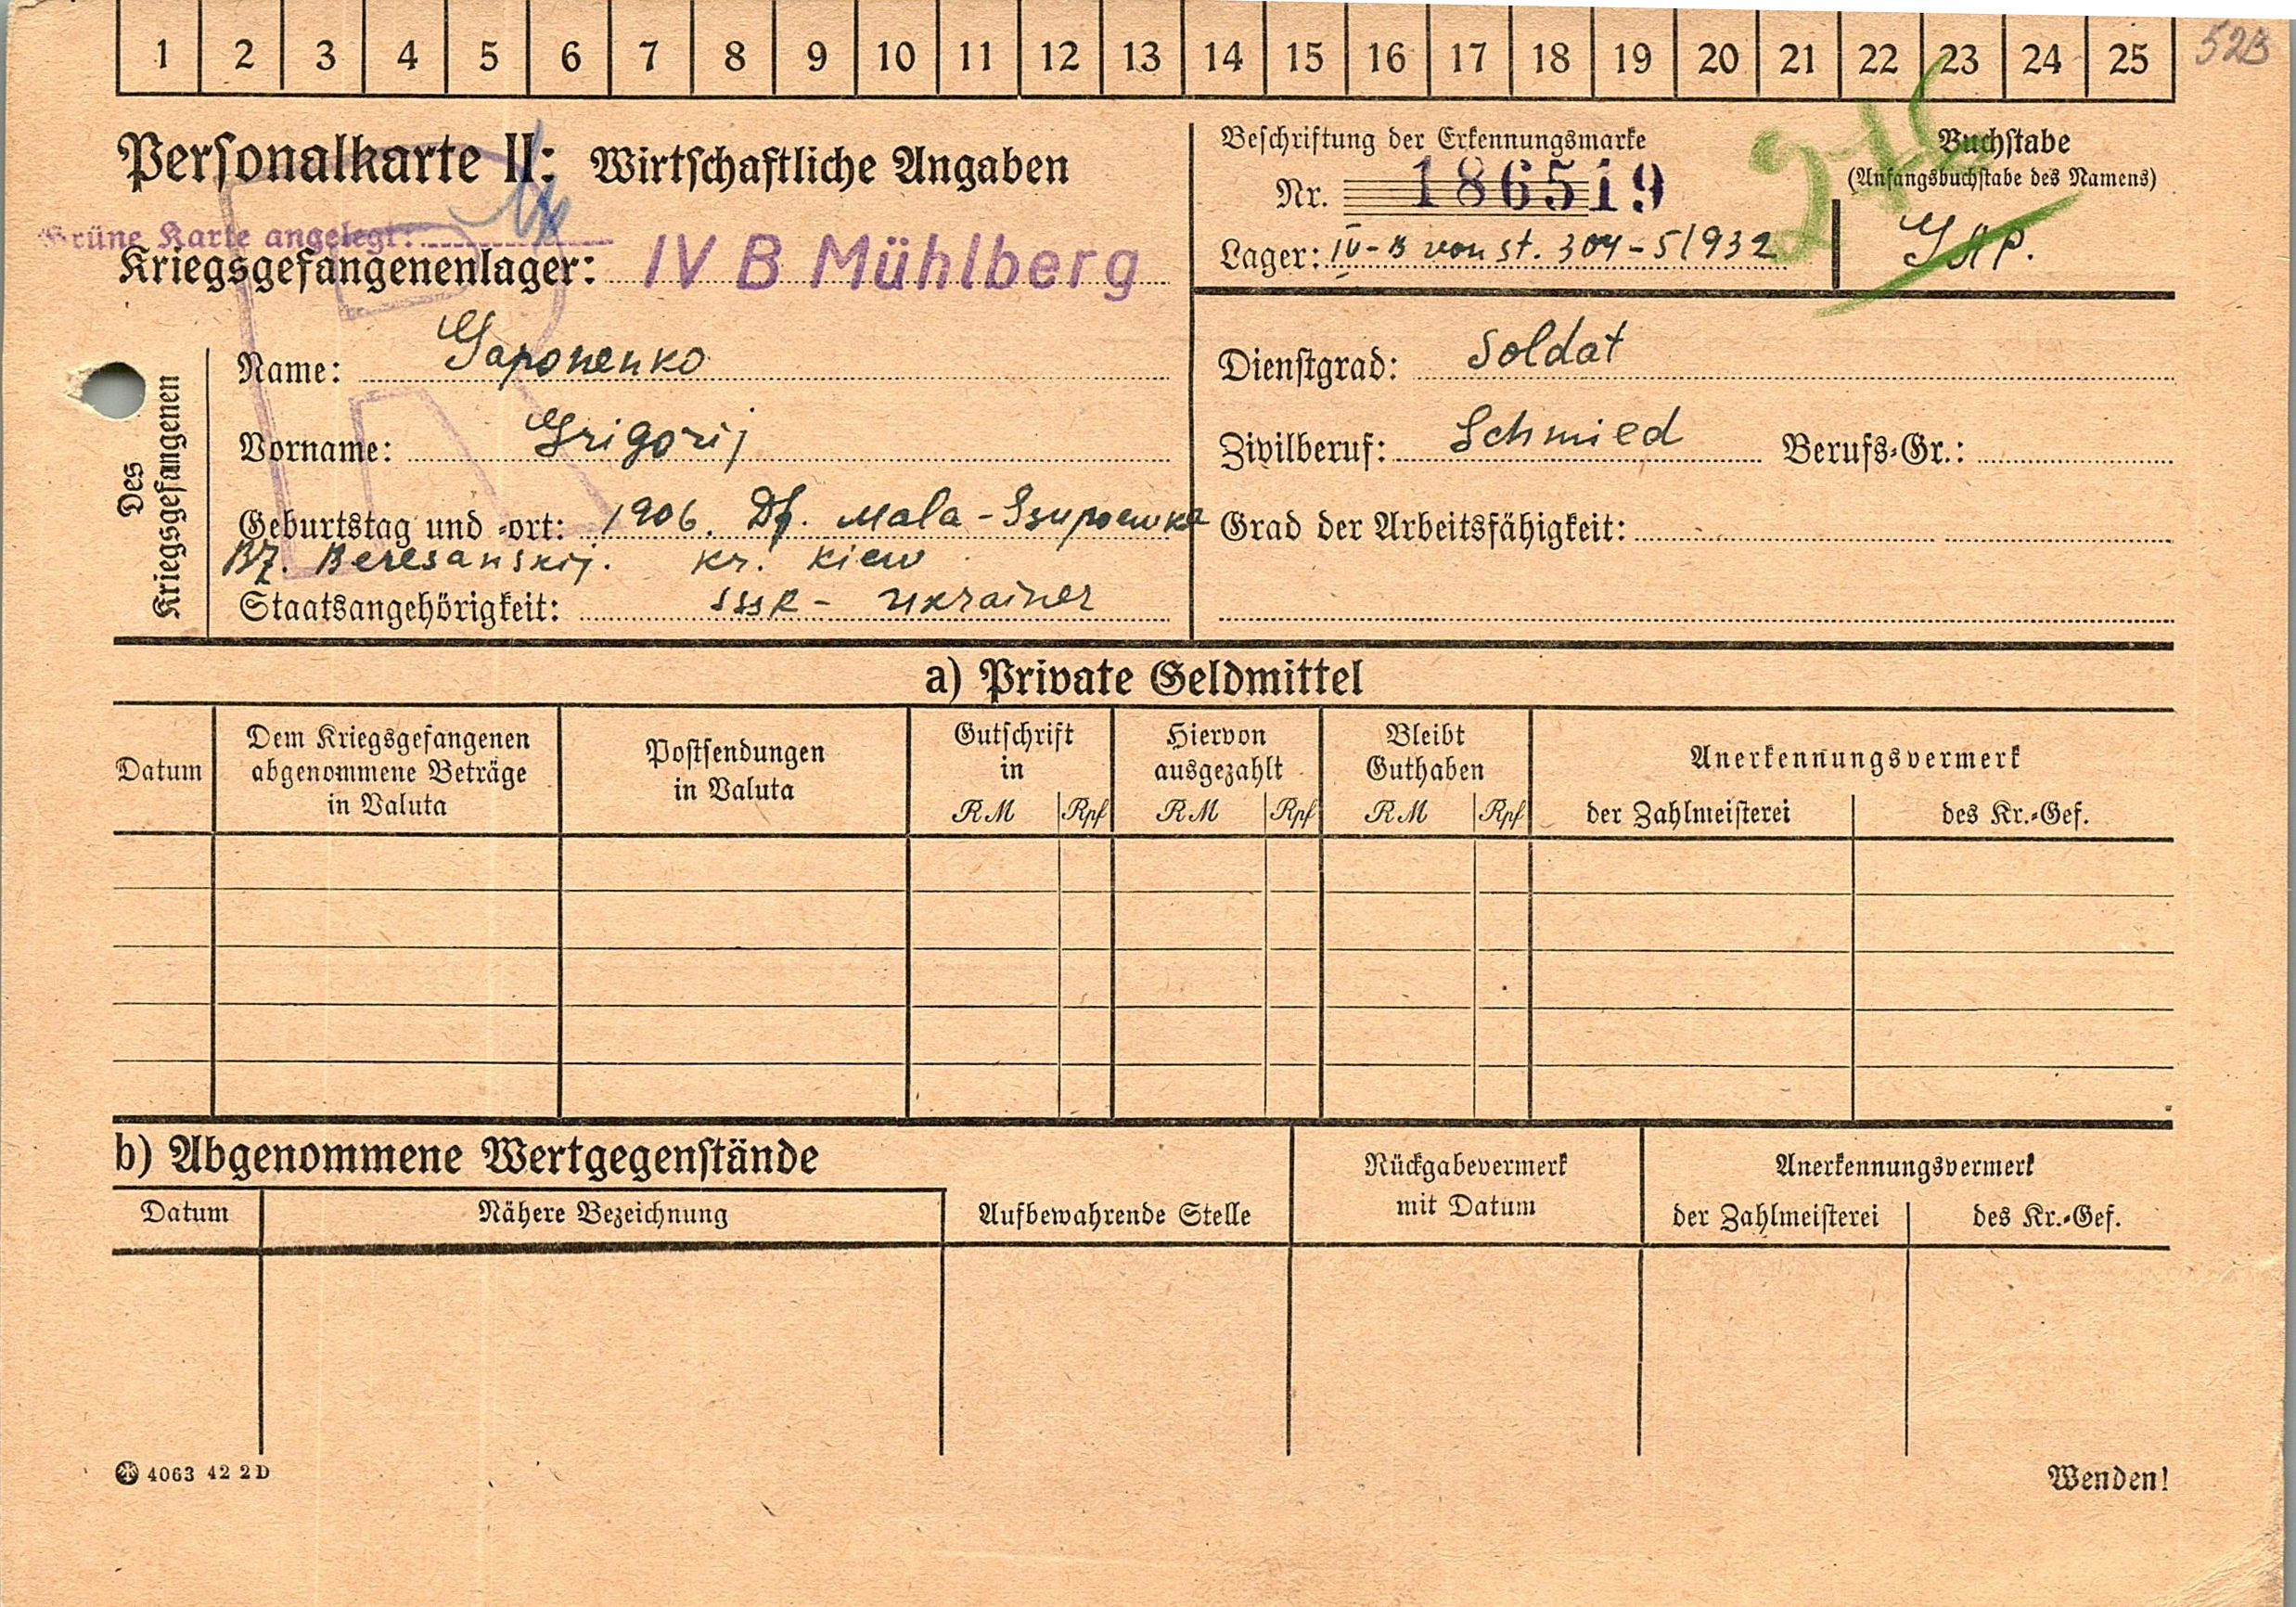 1 2 3 4 5 6 7 8 9 10 11 12 13 14 15 16 17 18 19 20 21 22 23 24 25
52B
Personalkarte II: Wirtschaftliche Angaben
Grüne Karte angelegt:
Kriegsgefangenenlager: IV B Mühlberg
Beschriftung der Erkennungsmarke
Nr. 186519
Lager: IV-B von St. 304-51932
Buchstabe
(Anfangsbuchstabe des Namens)
Gap.
Des Kriegsgefangenen
Name: Gaponenko
Vorname: Grigorij
Geburtstag und -ort: 1906. Df. Mala-Ssupoewka
Bz. Beresanskij. Kr. Kiew
Staatsangehörigkeit: SSSR- Ukrainer
Dienstgrad: Soldat
Zivilberuf: Schmied Berufs-Gr.:
Grad der Arbeitsfähigkeit:
a) Private Geldmittel
Datum
Dem Kriegsgefangenen
abgenommene Beträge
in Valuta
Postsendungen
in Valuta
Gutschrift
in
RM Rpf
Hiervon
ausgezahlt
RM Rpf
Bleibt
Guthaben
RM Rpf
Anerkennungsvermerk
der Zahlmeisterei des Kr.-Gef.
b) Abgenommene Wertgegenstände
Datum Nähere Bezeichnung
Aufbewahrende Stelle
Rückgabevermerk
mit Datum
Anerkennungsvermerk
der Zahlmeisterei des Kr.-Gef.
4063 42 2D
Wenden!